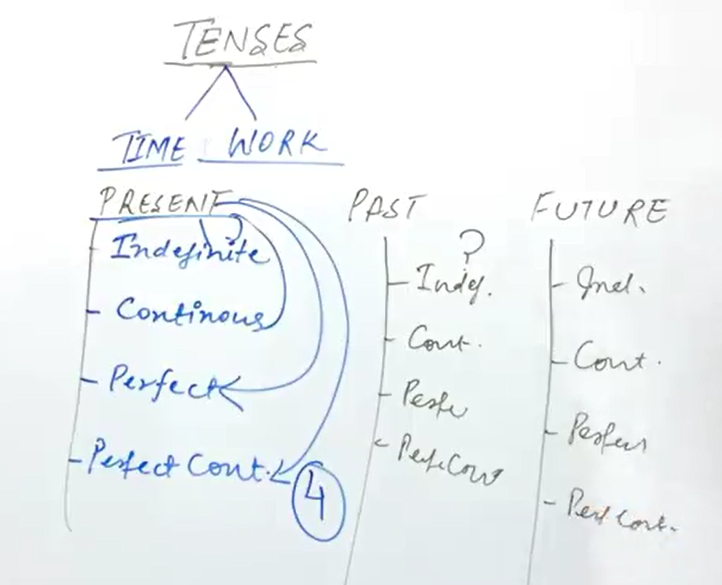 TENSES
TIME WORK
PRESENT
Indefinite
Continous
Perfect
Perfect Cont.
4
PAST
?
Indef.
Cont.
Perfe
Perf.Cont
FUTURE
Ind.
Cont.
Perfect
Perf Cont.